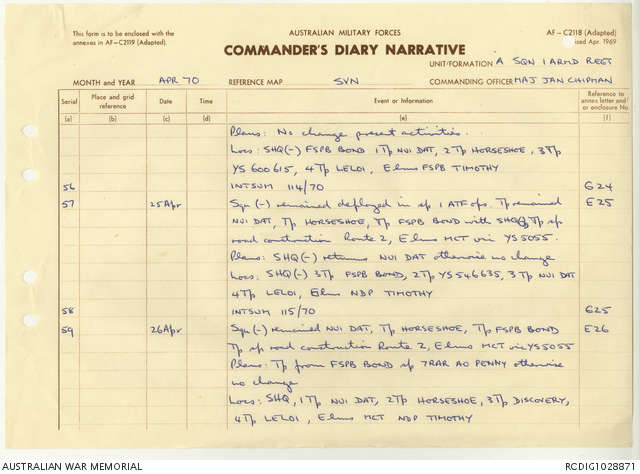 This form is to be enclosed with the
annexes in AF—C2119 (Adapted)
AUSTRALIAN MILITARY FORCES
AF—C2118 (Adapted)
ised Apr. 1969
COMMANDER'S DIARY NARRATIVE
UNIT/FORMATION A SQN 1 ARMD REGT
MONTH AND YEAR APR 70 REFERENCE MAP SVN COMMANDING OFFICER MAJ JAN CHIPMAN
Serial Place and grid reference Date Time Event or Information Reference to annex letter and or enclosure No.
(a) (b) (c) (d) (e) (f)
Plans: No change present activities.
Locs: SHQ(-) FSPB BOND 1 Tp NUI DAT, 2 Tp HORSESHOE, 3 Tp
YS 600615, 4 Tp LELOI, Elms FSPB TIMOTHY
56 INTSUM 114/70 G24
57 25 Apr Sqn (-) remained deployed in sp 1 ATF ops. Tp remained E25
NUI DAT, Tp HORSESHOE, Tp FSPB BOND with SHQ, Tp sp
road construction Route 2, Elms MCT vic YS5055.
Plans: SHQ(-) returns NUI DAT otherwise no change
Locs: SHQ(-) 3 Tp FSPB BOND, 2 Tp YS546635, 3 Tp NUI DAT
4 Tp LELOI, Elms NDP TIMOTHY
58 INTSUM 115/70 G25
59 26 Apr Sqn (-) remained NUI DAT, Tp HORSESHOE, Tp FSPB BOND E26
Tp sp road construction Route 2, Elms MCT vic YS5055
Plans: Tp from FSPB BOND sp 7RAR AO PENNY otherwise
no change
Locs: SHQ, 1 Tp NUI DAT, 2 Tp HORSESHOE, 3 Tp DISCOVERY,
4 Tp LELOI, Elms MCT NDP TIMOTHY
AUSTRALIAN WAR MEMORIAL
RCDIG1028871